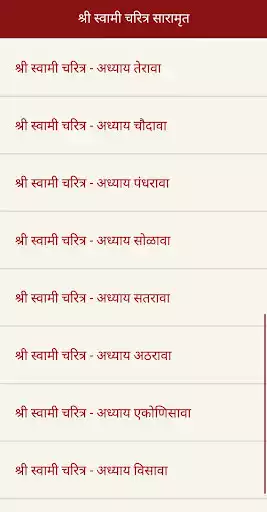 श्री स्वामी चरित्र सारामृत
श्री स्वामी चरित्र - अध्याय तेरावा
श्री स्वामी चरित्र - अध्याय चौदावा
श्री स्वामी चरित्र - अध्याय पंधरावा
श्री स्वामी चरित्र - अध्याय सोळावा
श्री स्वामी चरित्र - अध्याय सतरावा
श्री स्वामी चरित्र - अध्याय अठरावा
श्री स्वामी चरित्र - अध्याय एकोणिसावा
श्री स्वामी चरित्र - अध्याय विसावा